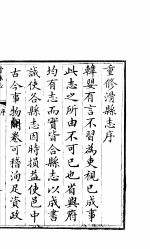 重修滑縣志序
韓嬰有言不習為吏視已成事
此志之所由不可已也省與府
均有志而實皆合縣志以成書
誠使各縣志因時損益使邑中
古今事物開卷可稽洵足資政